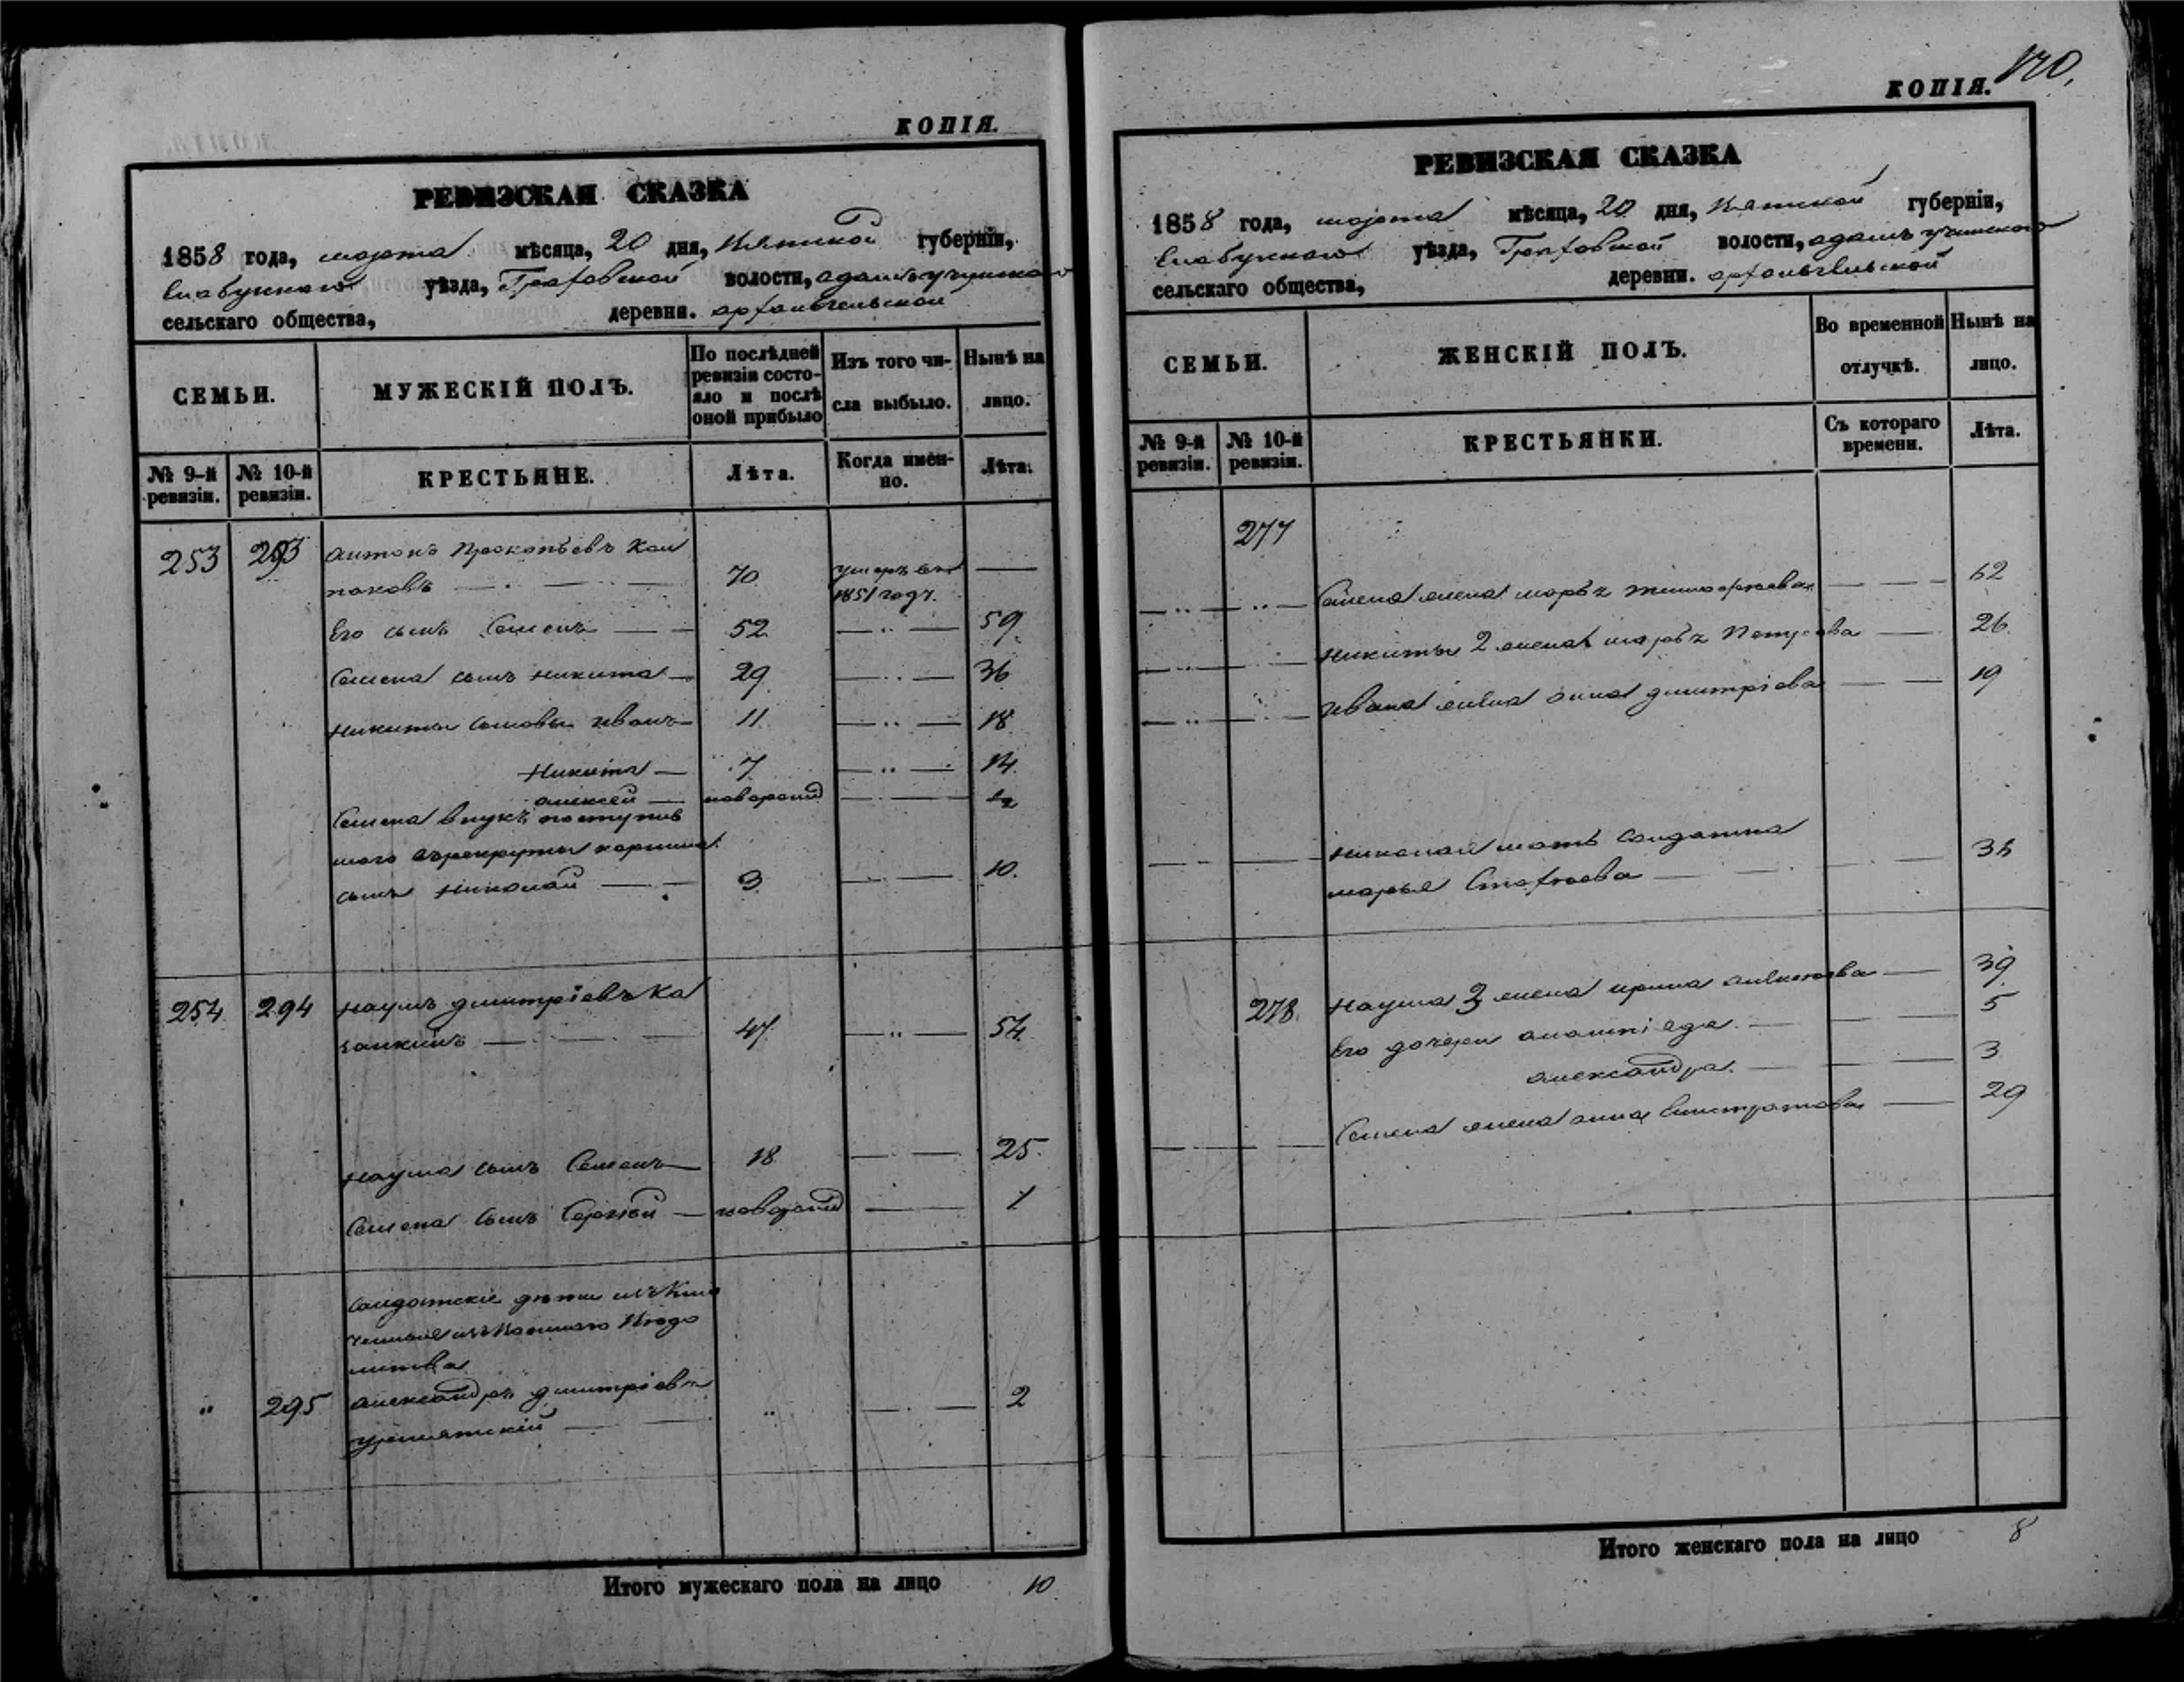 КОПІЯ.
РЕВИЗСКАЯ СКАЗКА
1858 года, марта мѣсяца, 20 дня, Вятской губерніи,
Елабужскаго уѣзда, Граховской волости,
сельскаго общества, деревни. Архангельской
СЕМЬИ.
МУЖЕСКІЙ ПОЛЪ.
По послѣдней ревизіи состояло и послѣ оной прибыло
Изъ того числа выбыло.
Нынѣ на лицо.
№ 9-й ревизіи.
№ 10-й ревизіи.
КРЕСТЬЯНЕ.
Лѣта.
Когда именно.
Лѣта.
253 293 Антонъ Прокопьевъ Кол
паковъ 70 умеръ въ 1851 году.
Его сынъ Семенъ 52 59
Семена сынъ Никита 29 36
Никиты сыновья Иванъ 11 18
Никита 7 14
Алексей новорожд
Семена внукъ поступив
шаго в рекруты
сынъ Николай 3 10
254 294 Наумъ Дмитріевъ Ка
47 54
Наума сынъ Семенъ 18 25
Семена сынъ Сергѣй новорожд 1
Солдатскіе дѣти
" 295 Александръ Дмитріевъ
" 2
Итого мужескаго пола на лицо 10
КОПІЯ. 170.
РЕВИЗСКАЯ СКАЗКА
1858 года, марта мѣсяца, 20 дня, Вятской губерніи,
Елабужскаго уѣзда, Граховской волости,
сельскаго общества, деревни. Архангельской
СЕМЬИ.
ЖЕНСКІЙ ПОЛЪ.
Во временной отлучкѣ.
Нынѣ на лицо.
№ 9-й ревизіи.
№ 10-й ревизіи.
КРЕСТЬЯНКИ.
Съ котораго времени.
Лѣта.
277
Семена жена Марья Тимофѣева 62
Никиты 2 жена Марья Петрова 26
Ивана жена Анна Дмитріева 19
Николая мать солдатка
Марья
278. Наума 2 жена Ирина 39
Его дочери 5
Александра 3
Семена жена Анна 29
Итого женскаго пола на лицо 8